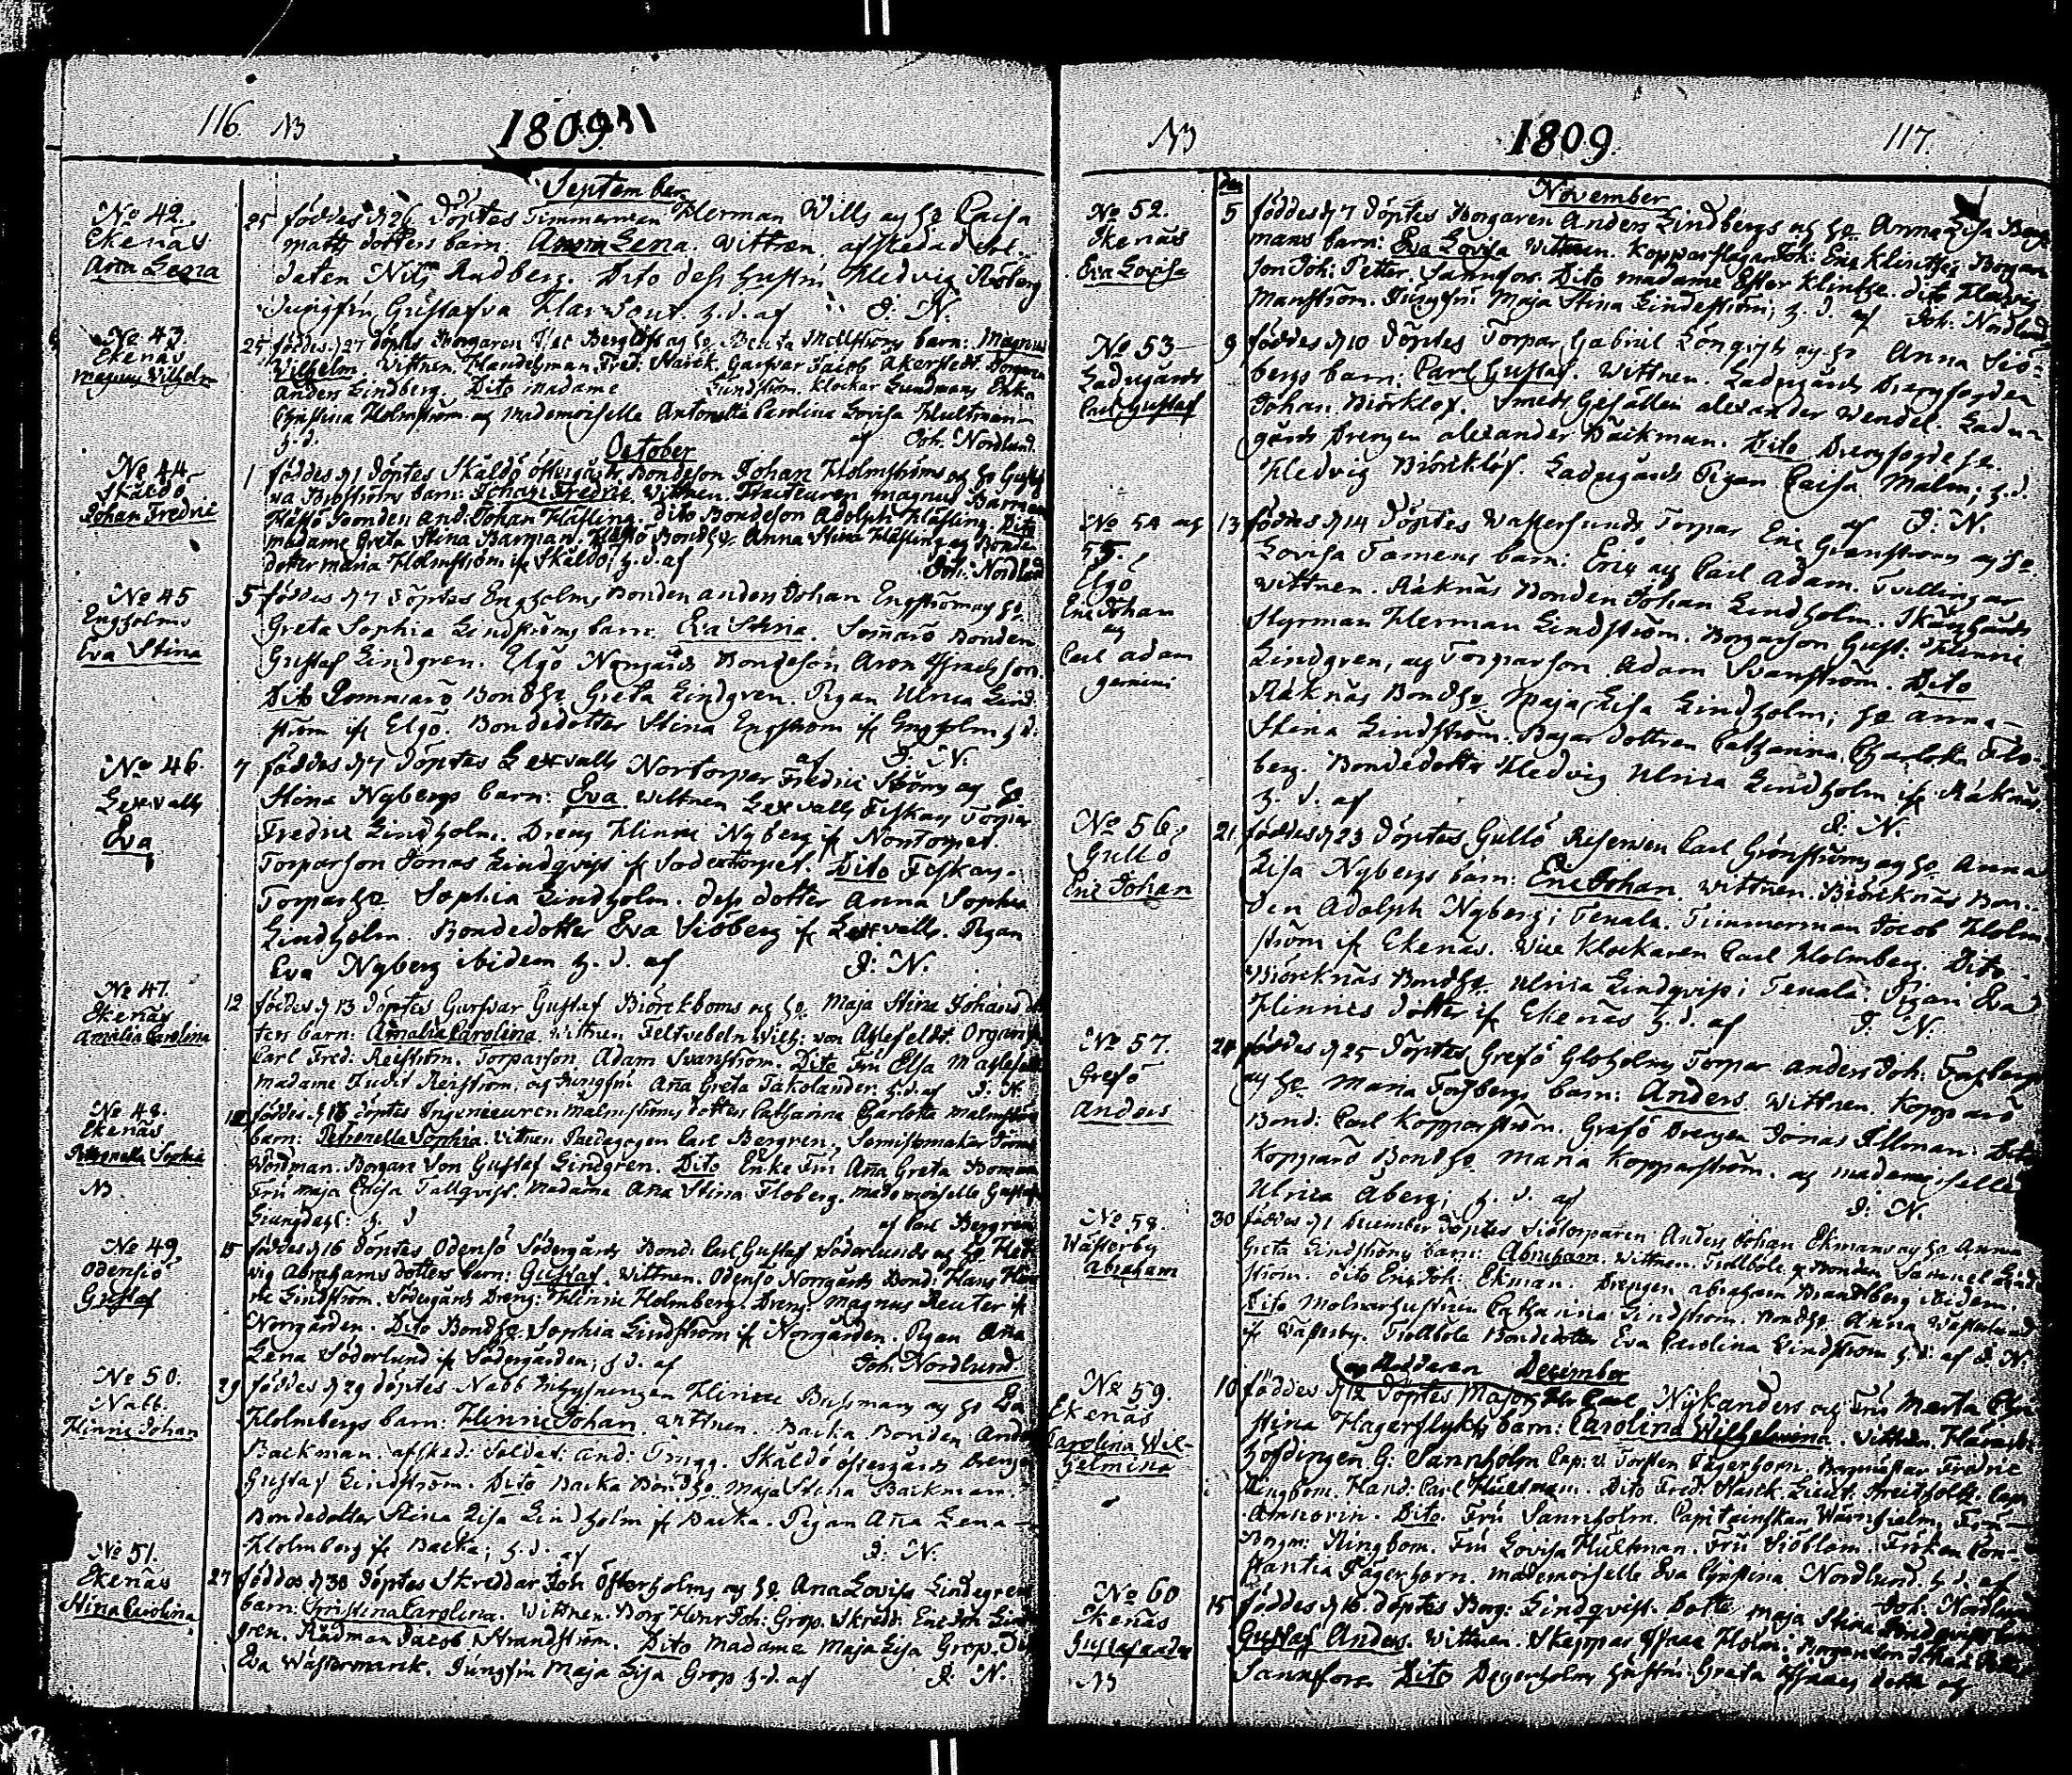 116. NB 1809
September
No 42.
Ekenäs
Anna Lena
25 föddes d 26 döptes Timmerman Herman Wills ag h: Caisa
matts dotters barn: Anna Lena. Wittnen. afskedad sol-
daten Nils Rudberg. Dito dess hustru Hedvig
Jungfru Gustafva h. d. af J: N.
No 43.
Ekenäs
Magnus Vilhelm
25 föddes d 27 döptes Borgaren barn: Magnus
Wilhelm. Wittnen. Handelsman Fred: Harck. Garfvar Jacob Åkerstedt. Borgaren
Anders Lindberg. Dito Madame Lindström. Klockar Lundmans Enka
Christina Holmström. ag Mademoiselle Antonetta Carolina Lovisa Hultman
h. d. af Joh: Nordlund.
October
No 44
Skåldö
Johan Fredric
1 föddes d 1 döptes Skåldö östergårds Bondeson Johan Holmströms ag h: Gusta
va barn: Johan Fredric. Wittnen. Tracteuren Magnus Barman
Bonden And: Johan Häfling. dito Bondeson Adolph Häfling. Dito
madame Greta Stina Barman. Bondh: Anna Stina Häfling ag Bonde
dotter Maria Holmström if Skåldö; h. d. af Joh: Nordlund
No 45
Engholms
Eva Stina
5 föddes d 7 döptes Engholms Bonden Anders Johan Engström ag h:
Greta Sophia Lindströms barn: Eva Stina. Sommarö Bonden
Gustaf Lindgren. Elgö Norrgårds Bondeson Aron Israelsson.
Dito Sommarö Bondh: Greta Lindgren. Pigan Ulrica Lind
ström if Elgö. Bondedotter Stina Engström if Engholm h d:
af J. N.
No 46.
Lexvalls
Eva
7 föddes d 7 döptes Lexvalls Nortorpar Fredric Ströms ag h:
Stina Nybergs barn: Eva. Wittnen Lexvalls Fiskars Torpar
Fredric Lindholm. Dreng Hinric Nyberg if Nortorpet.
Torparson Jonas Lindqvist if Södertorpet. Dito Fiskars
Torparh: Sophia Lindholm. dess dotter Anna Sophia
Lindholm. Bondedotter Eva Siöberg if Lexvalls. Pigan
Eva Nyberg ibidem h. d. af J: N.
No 47.
Ekenäs
Amalia Carolina
12 föddes d 13 döptes Garfvar Gustaf Biörckboms ag h: Maja Stina Johans dot
ters barn: Amalia Carolina. Wittnen. Feltvebeln Wilh: von Ahlefeldt. Organist
Carl Fred: Reiström. Torparson Adam Svanström. Dito Fru Elsa M
Madame Judit Reiström, ag Jungfru Anna Greta Takolander. h. d. af J. N.
No 48.
Ekenäs
Petronella Sophia
NB
12 föddes d 18 döptes Ingenieuren Malmströms dotters Catharina Charlotta Malmströms
barn: Petronella Sophia. Wittnen Pædagogen Carl Bergren.
Nordman. Borgare Son Gustaf Lindgren. Dito Enke Fru Anna Greta Boman
Fru Maja Elisa Tallqvist. Madame Ana Stina Floberg. Mademoiselle Gustafva
Liungdahl: h. d af Carl Bergren
No 49.
Odensiö
Gustaf
15 föddes d 16 döptes Odensö Södergårds Bond: Carl Gustaf Söderlunds ag h: Hed
vig Abrahams dotters barn: Gustaf. Wittnen. Odensö Norrgårds Bond: Hans Hen
ric Lindström. Södergårds Dreng: Hinric Holmberg. Dreng: Magnus Reuter if
Norrgården. Dito Bondh: Sophia Lindström if Norrgården. Pigan Ana
Lena Söderlund if Södergården; h. d. af Joh: Nordlund
No 50.
Nabb.
Hinric Johan
29 föddes d 29 döptes Nabb Inhysningen Hinric Bussmans ag h: Eva
Holmbergs barn: Hinric Johan. Wittnen. Backa Bonden Anders
Backman. afsked: Soldat: And: Trygg. Skåldö östergårds Drengen
Gustaf Lindström. Dito Backa Bondh: Maja Stina Backman.
Bondedotter Stina Lisa Lindholm if Backa. Pigan Ana Lena
Holmberg if Backa; h. d. af J: N.
No 51.
Ekenäs
Stina Carolina
27 föddes d 30 döptes Skreddar Joh Österholms ag h: Ana Lovisa Lindegrens
barn: Christina Carolina. Wittnen. Borg: Henr Joh: Grop. Skredd: Eric Joh Lind
gren. Rådman Jacob Strandström. Dito Madame Maja Lisa Grop. Dito
Eva Wästermarck. Jungfru Maja Lisa Grop h. d. af J. N.
NB 1809 117.
November
No 52.
Ekenäs
Eva Lovisa
den
5 föddes d 7 döptes Borgaren Anders Lindbergs ag h: Anna Lisa Berg
mans barn: Eva Lovisa Wittnen. Kopparslagar Joh: Eric Klintze. Borgar
son Joh: Petter Sannfors. Dito Madame Ester Klintze. dito Hedvig
Manström. Jungfru Maja Stina Lindeström; h. d. af Joh: Nordlund
No 53
Ladugårds
Carl Gustaf
9 föddes d 10 döptes Torpar Gabriel Lönqvists ag h: Anna Siö-
bergs barn: Carl Gustaf. Wittnen. Ladugårds Drengforden
Johan Biörklöf. Smeds Gesällen Alexander Wendel. Ladu-
gårds Drengen Alexander Backman. Dito h:
Hedvig Biörcklöf. Ladugårds Pigan Caisa Malm; h. d.
af J: N.
No 54 ag
55.
Elgö
Eric Johan
ag
Carl Adam
gemini
13 föddes d 14 döptes Wassersunds Torpar Eric Granströms ag h:
Lovisa Tamens barn: Eric ag Carl Adam. Tvillingar
Wittnen. Råknäs Bonden Johan Lindholm. Skärgårds
Styrman Herman Lindström. Borgarson Gust: Hinric
Lindgren, ag Torparson Adam Svanström. Dito
Råknäs Bondh: Maja Lisa Lindholm; h: Anna
Stina Lindström. dottren Catharina Charlotta Flo-
berg. Bondedotter Hedvig Ulrica Lindholm if Råknäs.
h. d. af J: N.
No 56.
Gullö
Eric Johan
21 föddes d 23 döptes Gullö Reserven Carl Grönströms ag h: Anna
Lisa Nybergs barn: Eric Johan. Wittnen. Biörcknäs Bon-
den Adolph Nyberg i Tenala. Timmerman Jacob Holm
ström if Ekenäs. Vice Klockaren Carl Holmberg. Dito
Biörcknäs Bondh: Ulrica Lindqvist i Tenala. Pigan Eva
Hinrics dotter if Ekenäs h. d. af J. N.
No 57.
Grefö
Anders
24 föddes d 25 döptes Grefö Torpar Anders Joh:
ag h: Maria Forsbergs barn: Anders. Wittnen. Kopparö
Bond: Carl Kopparström. Grefö Drengen Jonas Illman. Dito
Kopparö Bondh: Maria Kopparström. ag Mademoiselle
Ulrica Åberg; h. d. af J. N.
No 58.
Wästerby
Abraham
30 föddes d 1 December döptes Siötorparen Anders Johan Ekmans ag h: Anna
Greta Lindströms barn: Abraham. Wittnen. Trollböle Bonden Samuel Lind
ström. dito Eric Joh: Ekman. Drengen Abraham Brandtberg ibidem.
Dito Molnarhustrun Catharina Lindström. Bondh: Anna Wästerlund
if Wästerby. Trollböle Bondedotter Eva Carolina Lindström h. d. af J. N.
ag Riddaren December
No 59.
Ekenäs
Carolina Wil-
helmina
10 föddes d 12 döptes Major Hr Carl Nykanders ag Fru Marta Chri
stina Hagerflykts barn: Carolina Wilhelmina. Wittnen. Härads
höfdingen G: Sannholm Cap: v. Torsten Fägerhorn. Borgmästar Fredric
Ringbom. Hand: Carl Hultman. Dito Fred: Harck. Lieut. Breitholtz. Cap:
Amnorin. Dito. Fru Sannholm. Capitainskan Wärnhielm, Fru
Borgm: Ringbom. Fru Lovisa Hultman. Fru Siöblom. Fröken Con-
stantia Fägerhorn. Mademoiselle Eva Christina Nordlund. h. d. af
Joh: Nordlund
No 60
Ekenäs
Gustaf Anders
NB
15 föddes d 16 döptes Borg: Lindqvist dotter Maja Stina Lindqvists barn
Gustaf Anders. Wittnen. Skeppar Isaac Holm. Borgareson Johan Petter
Sannfors. Dito Degerholms hustru Greta Isaacs dotter ag